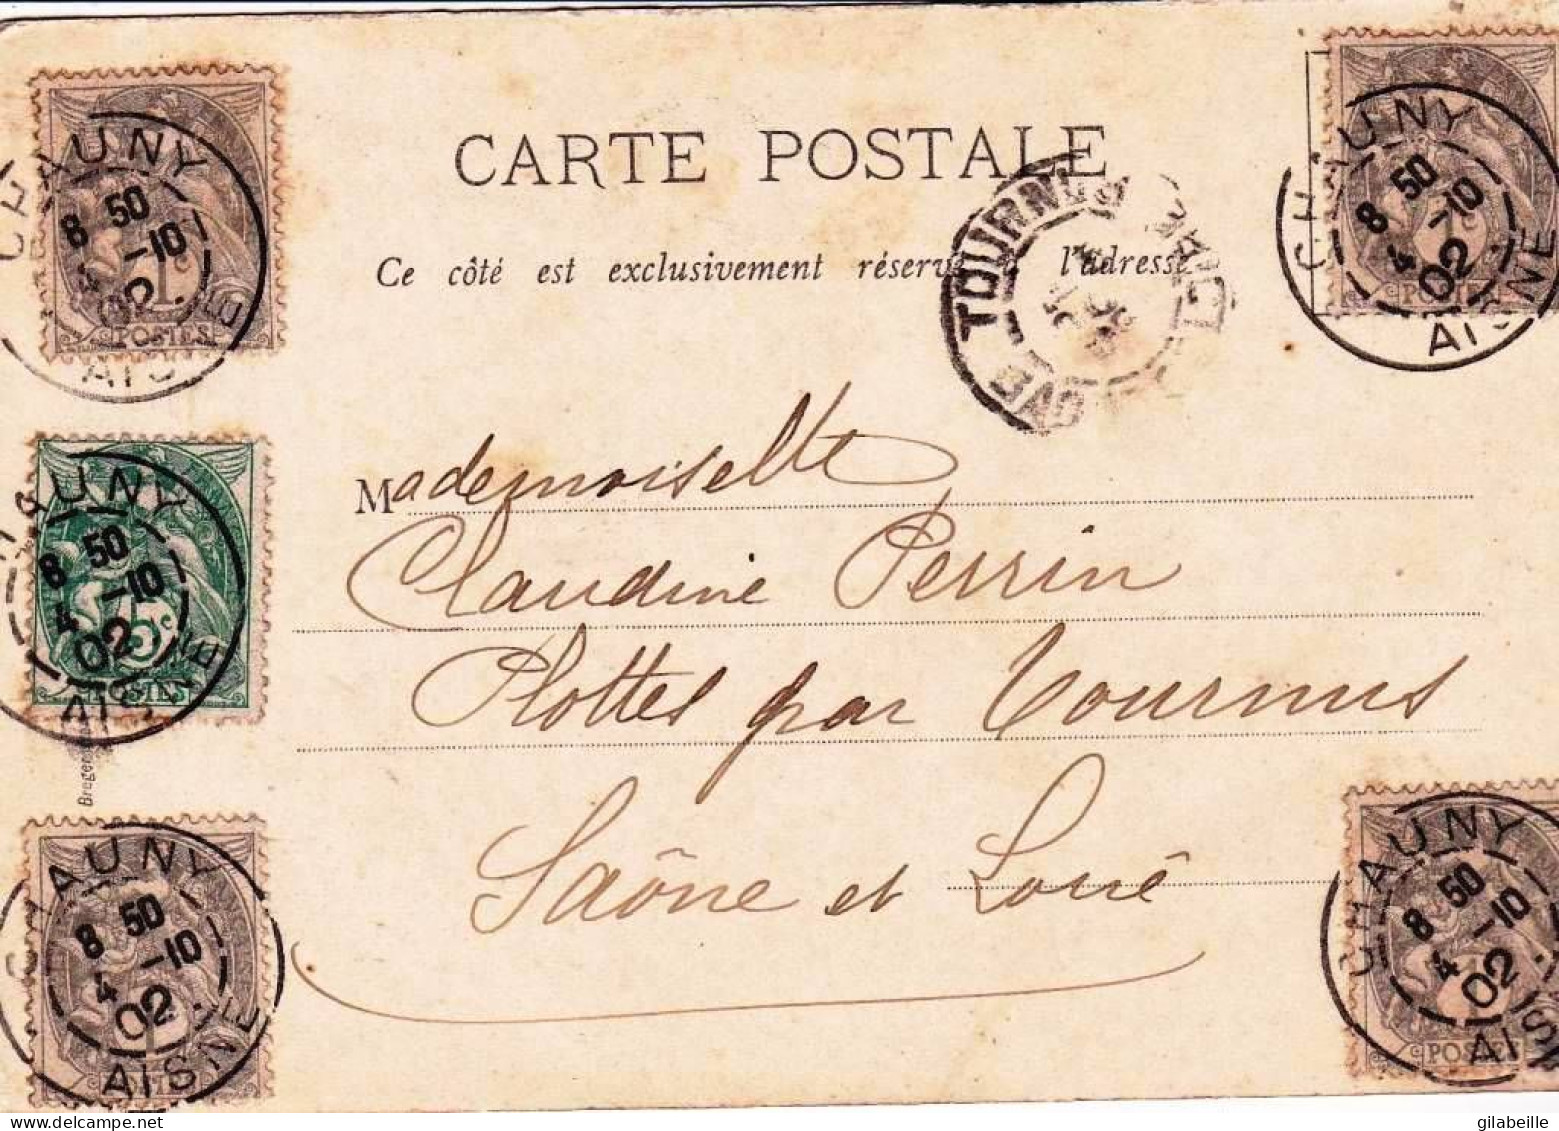 CARTE POSTALE
Ce côté est exclusivement réservé l'adresse
Mademoiselle
Claudine Perrin
Plottes par Tournus
Saône et Loire
CHAUNY
8 50
4 -10
02
AISNE
1c
POSTES
CHAUNY
8 50
4 -10
02
AISNE
1c
POSTES
CHAUNY
8 50
4 -10
02
AISNE
5c
POSTES
CHAUNY
8 50
4 -10
02
AISNE
POSTES
CHAUNY
8 50
4 -10
02
AISNE
POSTES
TOURNUS
gilabeille